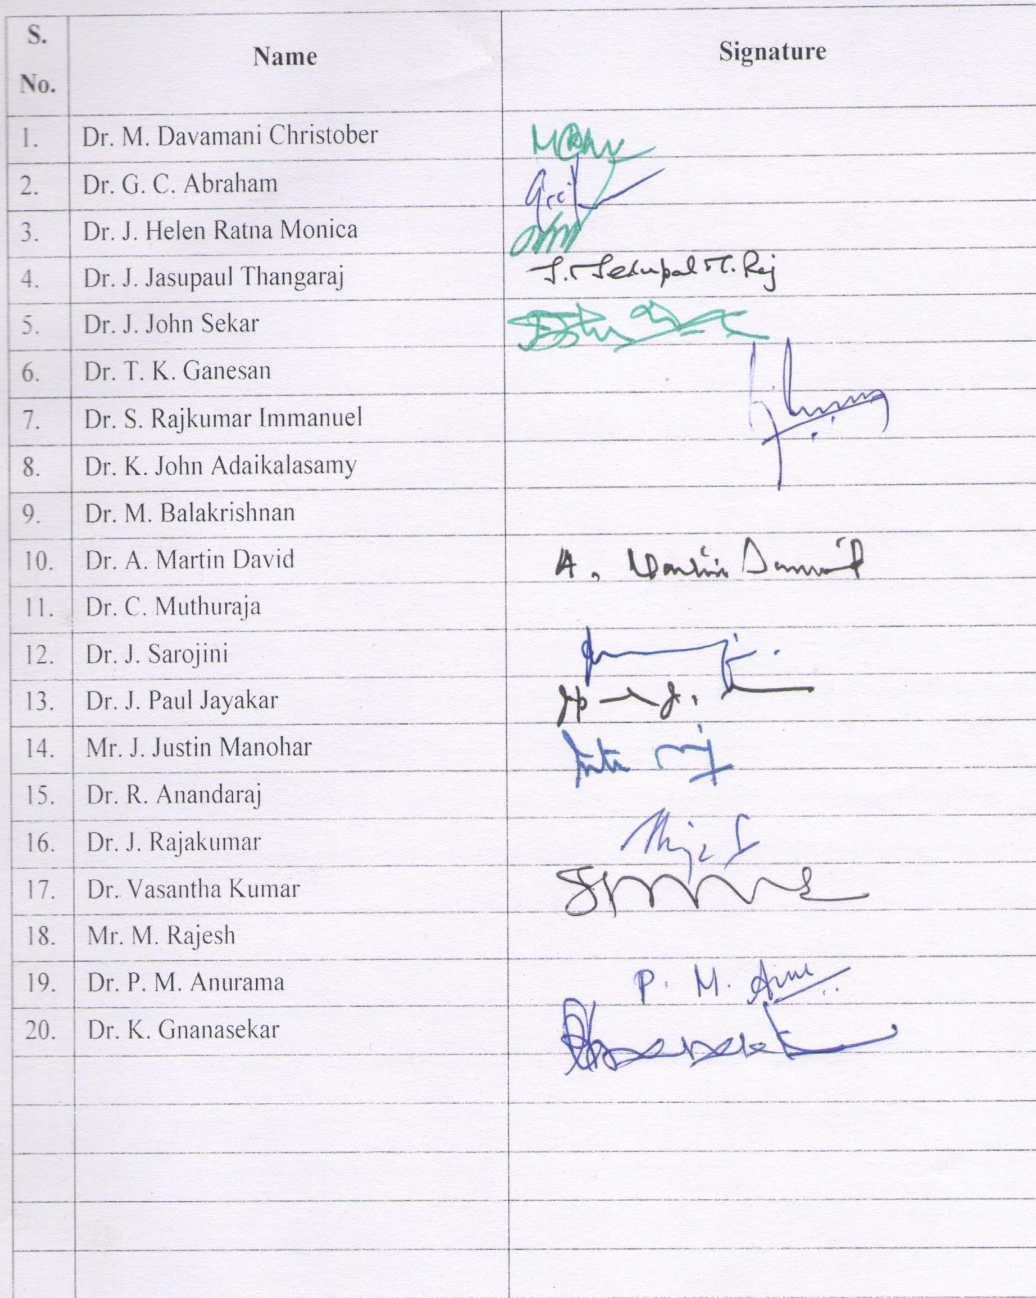 S. No. Name Signature
1. Dr. M. Davamani Christober
2. Dr. G. C. Abraham
3. Dr. J. Helen Ratna Monica
4. Dr. J. Jasupaul Thangaraj
5. Dr. J. John Sekar
6. Dr. T. K. Ganesan
7. Dr. S. Rajkumar Immanuel
8. Dr. K. John Adaikalasamy
9. Dr. M. Balakrishnan
10. Dr. A. Martin David A. Martin David
11. Dr. C. Muthuraja
12. Dr. J. Sarojini
13. Dr. J. Paul Jayakar
14. Mr. J. Justin Manohar
15. Dr. R. Anandaraj
16. Dr. J. Rajakumar
17. Dr. Vasantha Kumar
18. Mr. M. Rajesh
19. Dr. P. M. Anurama P. M.
20. Dr. K. Gnanasekar